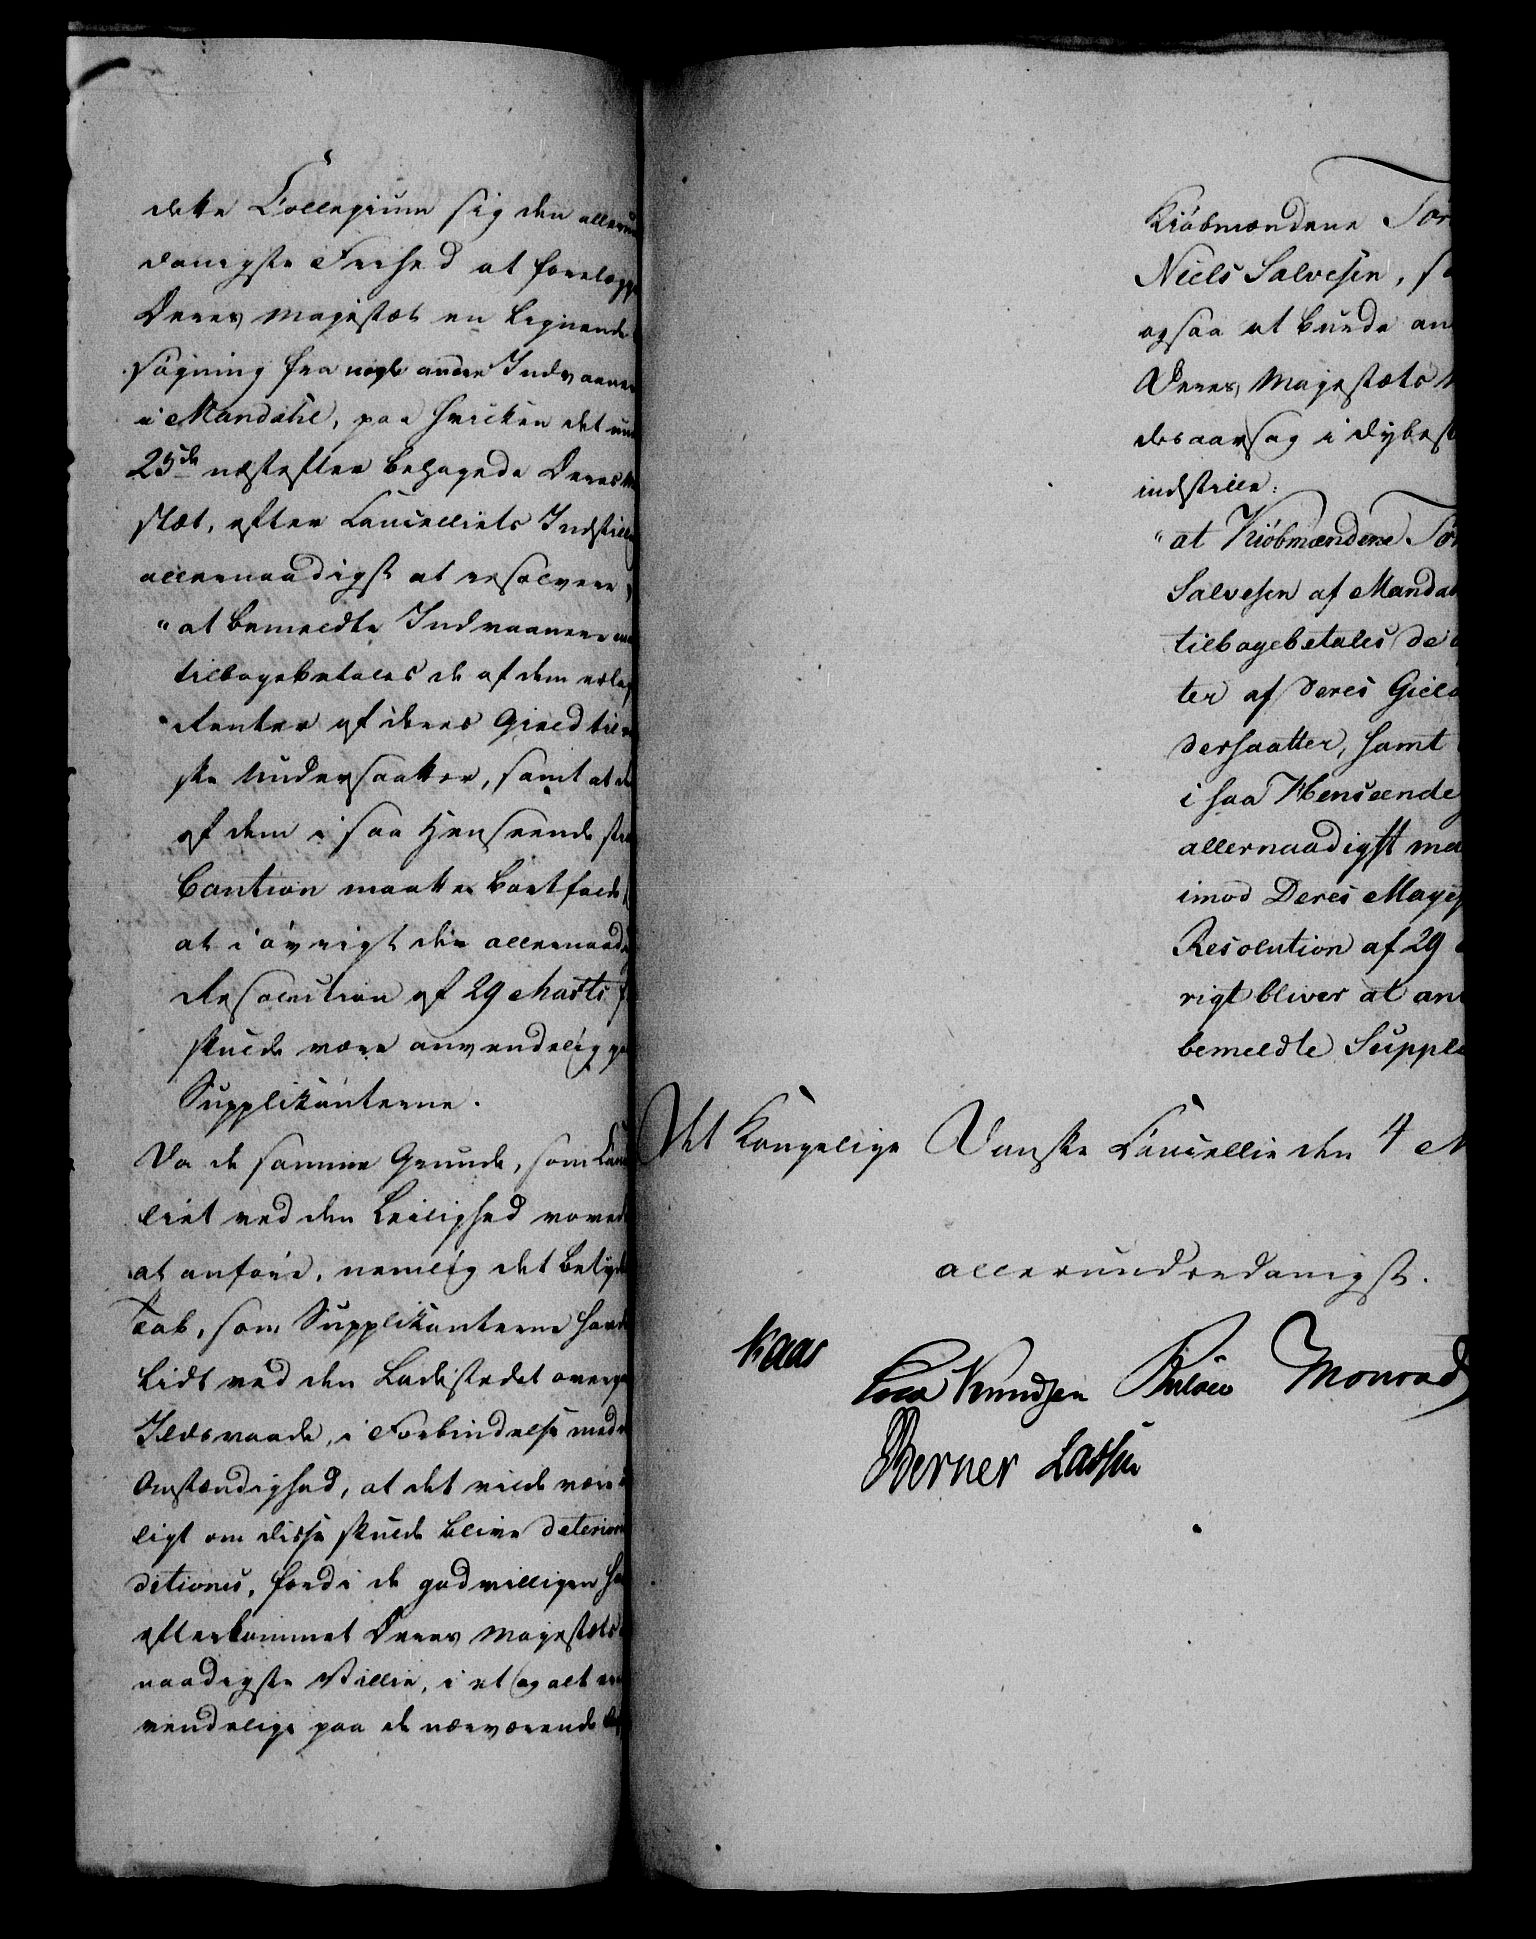 dette Collegium sig den allerun
danigste Friehed at forelægge
Deres Majestæt en lignende
søgning fra nogle andre Indvaanere
i Mandahl, paa hvilken det un
25de næstefter behagede Deres Ma
stæt, efter Cancelliets Indstill
allernaadigst at resolvere
"at bemeldte Indvaanere
tilbagebetales de af dem erlag
Renter af deres Gield til
ske Undersaatter, samt at de
af dem i saa Henseende stil
Caution maatte bortfalde,
at i øvrigt den allernaad
Resolution af 29 Marts
skulde være anvendelig paa
Supplikanterne.
Da de samme Grunde, som Can
liet ved den Leilighed vovede
at anføre, nemlig det betyde
Tab, som Supplikanterne havde
lidt ved den Ladestedet overga
Ildsvaade, i Forbindelse med
Omstændighed, at det vilde være
ligt om disse skulde blive deterior
ditionis, fordi de godvilligen ha
efterkommet Deres Majestæts
naadigste Villie, i et og alt ere
vendelige paa de nærværende
Kiøbmændene Tør
Niels Salvesen, s
ogsaa at burde an
Deres Majestæts
desaarsag i dybest
indstille:
"at Kiøbmændene Tør
Salvesen af Mandal
tilbagebetales de
ter af deres Gield
dersaatter, samt
i saa Henseende
allernaadigst maa
imod Deres Majest
Resolution af 29
rigt bliver at an
bemeldte Supplik
Det Kongelige Danske Cancellie den 4 M
allerunderdanigst.
Kaas
Knudsen Bülow Monrad
Berner Lassen